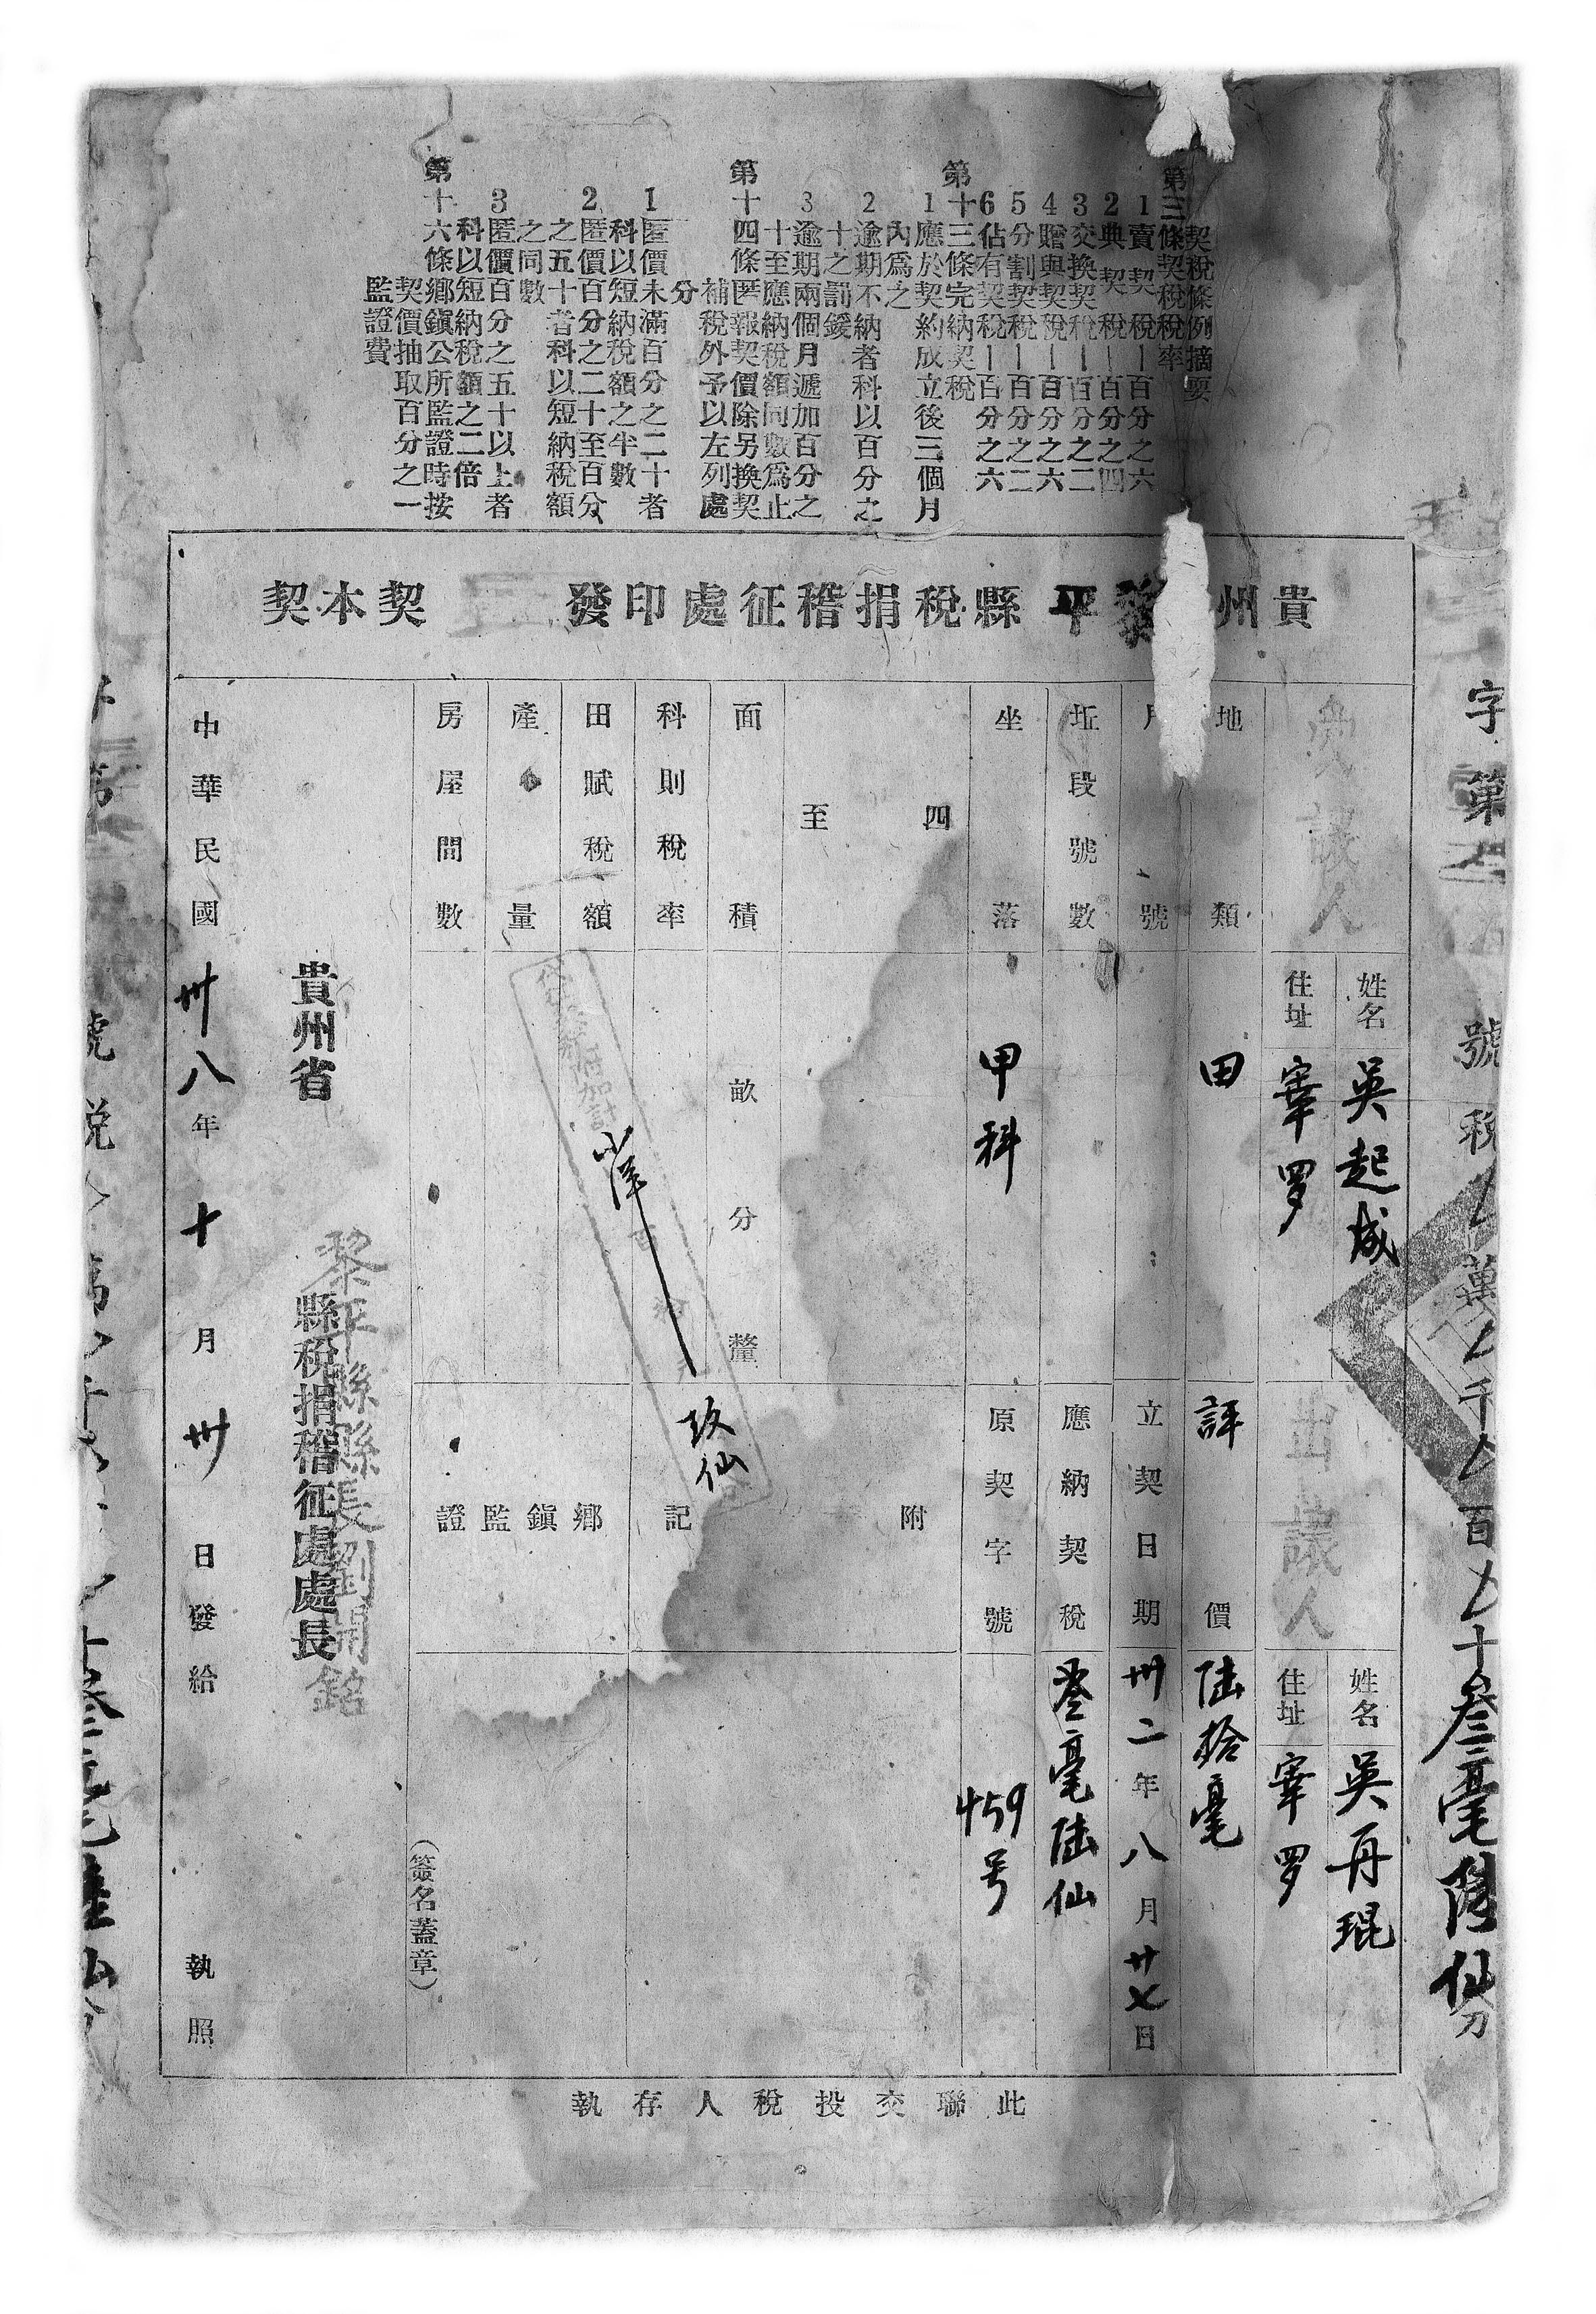 契稅條例摘要
第三條契稅稅率
1賣契稅—百分之六
2典契稅—百分之四
3交換契稅—百分之二
4贈與契稅—百分之六
5分割契稅—百分之二
6佔有契稅—百分之六
第十三條完納契稅
1應於契約成立後三個月
內爲之
2逾期不納者科以百分之
十之罰鍰
3逾期兩個月遞加百分之
十至應納稅額同數爲止
第十四條匿報契價除另換契
補稅外予以左列處
分
1匿價未滿百分之二十者
科以短納稅額之半數
2匿價百分之二十至百分
之五十者科以短納稅額
之同數
3匿價百分之五十以上者
科以短納稅額之二倍
第十六條鄉鎭公所監證時按
契價抽取百分之一
監證費
貴州黎平縣稅捐稽征處印發 契本契
字第 號稅 萬 千 百 十叁毫陸仙分
承讓人
姓名 吳起成
住址 宰罗
出讓人
姓名 吳再琨
住址 宰罗
地類 田
評價 陸拾毫
號
立契日期 卅二年八月廿七日
坵段號數
應納契稅 叁毫陸仙
坐落 甲科
原契字號 459号
四至
附記
面積 畝分釐
科則稅率
田賦稅額
玖仙
產量
房屋間數
鄉鎭監證
（簽名蓋章）
貴州省 縣稅捐稽征處處長
黎平縣縣長劉開銘
中華民國卅八年十月卅日發給執照
此聯交投稅人存執